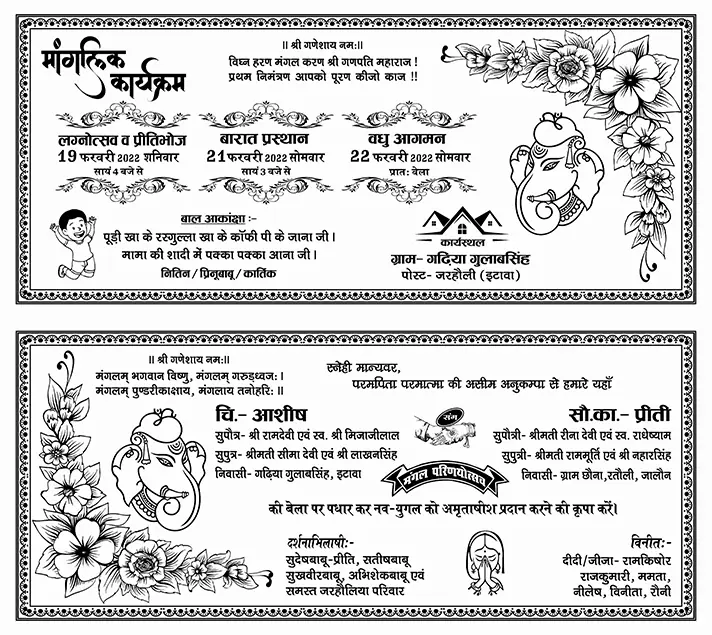 ॥ श्री गणेशाय नमः॥
विघ्न हरण मंगल करण श्री गणपति महाराज !
प्रथम निमंत्रण आपको पूरण कीजो काज !!
मांगलिक
कार्यक्रम
लग्नोत्सव व प्रीतिभोज
19 फरवरी 2022 शनिवार
सायं 4 बजे से
बारात प्रस्थान
21 फरवरी 2022 सोमवार
सायं 3 बजे से
वधु आगमन
22 फरवरी 2022 सोमवार
प्रातः बेला
बाल आकांक्षा :-
पूड़ी खा के रसगुल्ला खा के कॉफी पी के जाना जी ।
मामा की शादी में पक्का पक्का आना जी ।
नितिन / प्रिनूबाबू / कार्तिक
कार्यस्थल
ग्राम- गढ़िया गुलाबसिंह
पोस्ट- जरहौली (इटावा)
॥ श्री गणेशाय नमः॥
मंगलम् भगवान विष्णु, मंगलम् गरुड़ध्वजः ।
मंगलम् पुण्डरीकाक्षाय, मंगलाय तनोहरिः ॥
स्नेही मान्यवर,
परमपिता परमात्मा की असीम अनुकम्पा से हमारे यहाँ
चि.- आशीष
सुपौत्र- श्री रामदेवी एवं स्व. श्री मिजाजीलाल
सुपुत्र- श्रीमती सीमा देवी एवं श्री लाखनसिंह
निवासी- गढ़िया गुलाबसिंह, इटावा
संग
सौ.का.- प्रीती
सुपौत्री- श्रीमती रीना देवी एवं स्व. राधेष्याम
सुपुत्री- श्रीमती राममूर्ति एवं श्री नहारसिंह
निवासी- ग्राम छौना, रतौली, जालौन
मंगल परिणयोत्सव
की बेला पर पधार कर नव-युगल को अमृताषीश प्रदान करने की कृपा करें।
दर्शनाभिलाषीः-
सुदेषबाबू-प्रीति, सतीषबाबू
सुखवीरबाबू, अभिशेकबाबू एवं
समस्त जरहौलिया परिवार
विनीतः-
दीदी/जीजा- रामकिषोर
राजकुमारी, ममता,
नीलेष, विनीता, रौनी